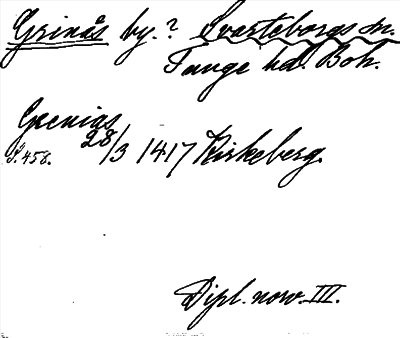 Grinås by.? Svarteborgs sn.
Tunge hd. Boh.
Grenias
S. 458. 28/3 1417 Kirkeberg.
Dipl. norv. III.